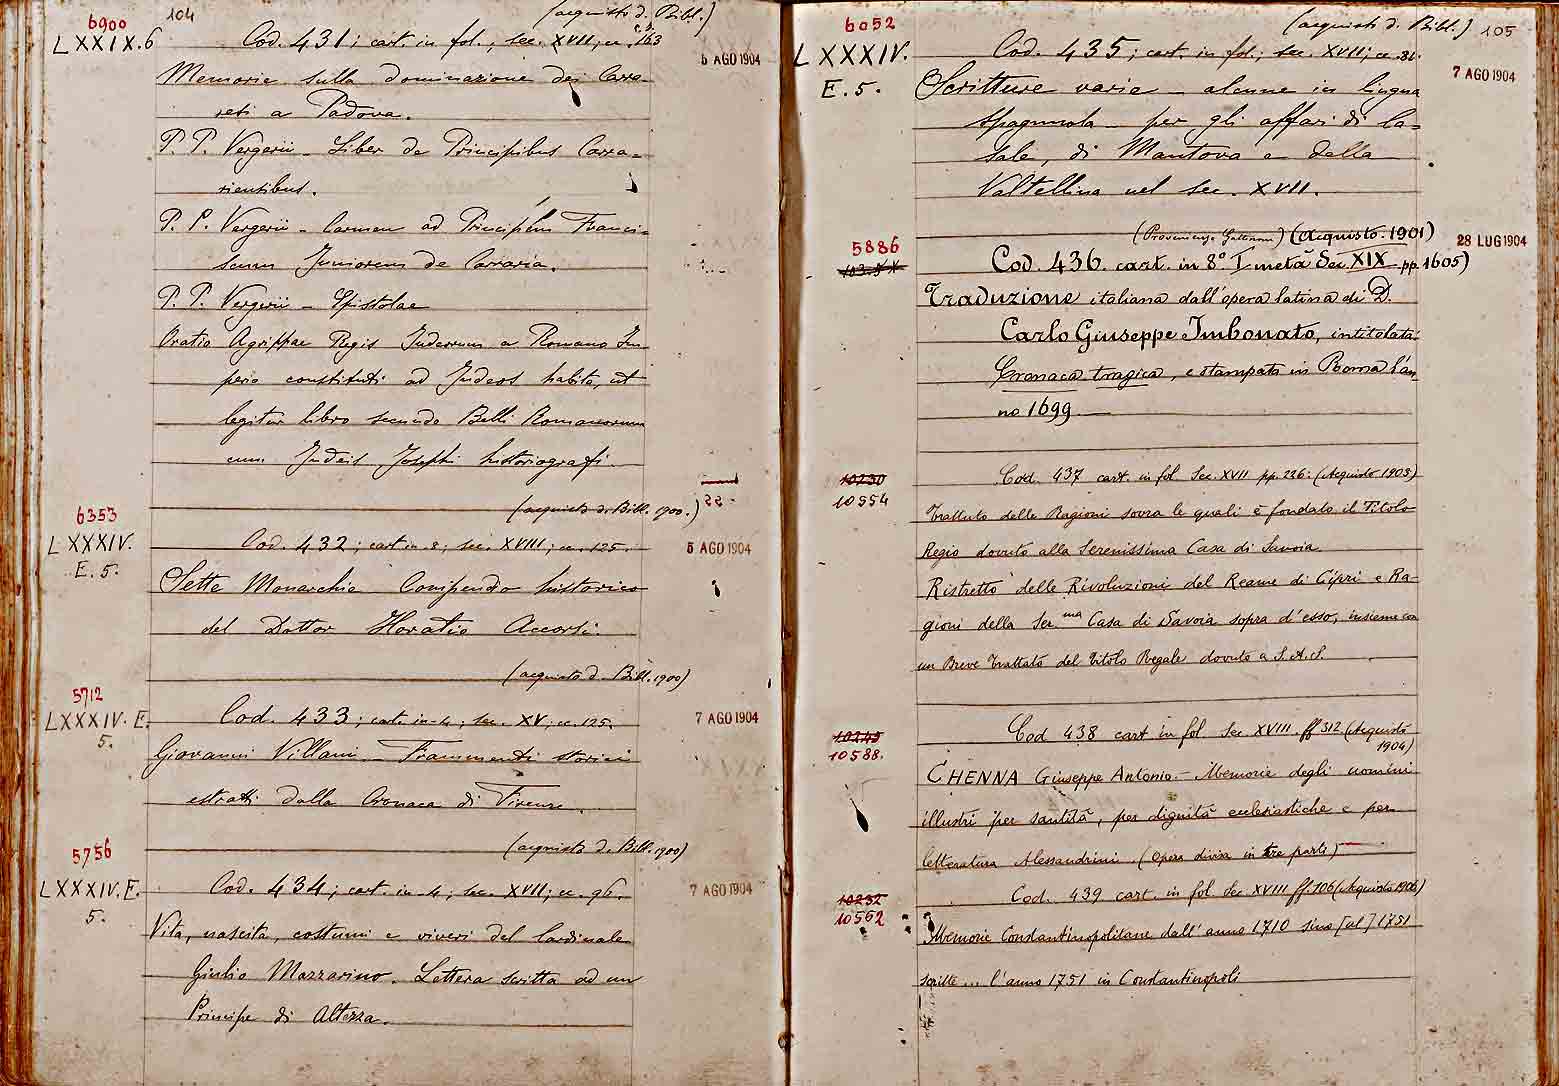 104
(acquisto d. Bibl.)
6900
LXXIX.6
Cod. 431; cart. in fol.; sec. XVII; cc. 163
6 AGO 1904
Memorie sulla dominazione dei Carra=
resi a Padova.
P. P. Vergerii - Liber de Principibus Carra=
riensibus.
P. P. Vergerii - Carmen ad Principem Franci=
scum Juniorem de Carraria.
P. P. Vergerii - Epistolae
Oratio Agrippae Regis Judeorum a Romano Im
perio constituti ad Judeos habita, ut
legitur libro secundo Belli Romanorum
cum Judeis Josephi historiografi.
(acquisto d. Bibl. 1900.)
6353
LXXXIV.
E. 5.
Cod. 432; cart. in 8; sec. XVIII; cc. 125.
5 AGO 1904
Sette Monarchie Compendio historico
del Dottor Horatio Accorsi.
(acquisto d. Bibl. 1900)
5712
LXXXIV. E.
5.
Cod. 433; cart. in-4; sec. XV; cc. 125.
7 AGO 1904
Giovanni Villani - Frammenti storici
estratti dalla Cronaca di Firenze.
(acquisto d. Bibl. 1900)
5756
LXXXIV. E.
5.
Cod. 434; cart. in-4; sec. XVII; cc. 96.
7 AGO 1904
Vita, nascita, costumi e viveri del Cardinale
Giulio Mazzarino. Lettera scritta ad un
Principe di Altezza.
(acquisto d. Bibl.) 105
6052
LXXXIV.
E. 5.
Cod. 435; cart. in fol.; sec. XVII; cc. 81.
7 AGO 1904
Scritture varie - alcune in lingua
spagnuola - per gli affari di Ca=
sale, di Mantova e della
Valtellina nel sec. XVII.
(Acquisto. 1901)
5886
28 LUG 1904
Cod. 436. cart. in 8° I metà Sec. XIX pp. 1605)
Traduzione italiana dall'opera latina di D.
Carlo Giuseppe Imbonato, intitolata:
Cronaca tragica, e stampata in Roma l'an
no 1699
10230
10554
Cod. 437 cart. in fol. Sec. XVII pp. 226: (Acquisto 1903)
Trattato delle Ragioni sovra le quali è fondato il Titolo
Regio dovuto alla Serenissima Casa di Savoia.
Ristretto delle Rivoluzioni del Reame di Cipri e Ra-
gioni della Ser.ma Casa di Savoia sopra d'esso, insieme con
un Breve Trattato del Titolo Regale dovuto a S.A.S.
10245
10588.
Cod 438 cart. in fol. Sec XVIII. ff 312 (Acquisto
1904)
CHENNA Giuseppe Antonio - Memorie degli uomini
illustri per santità, per dignità ecclesiastiche e per
letteratura Alessandrini. (Opera divisa in tre parti)
10232
10562
Cod. 439 cart. in fol. Sec XVIII ff. 106 (Acquisto 1906)
Memorie Constantinopolitane dall'anno 1710 sino [al] 1751
scritte... l'anno 1751 in Constantinopoli